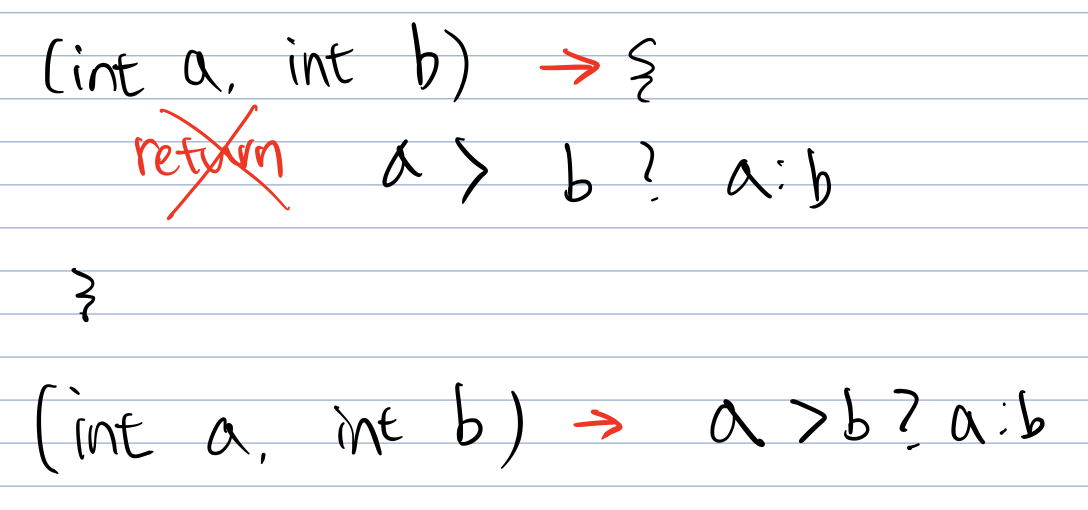 (int a, int b) → {
return a > b ? a : b
}
(int a, int b) → a > b ? a : b